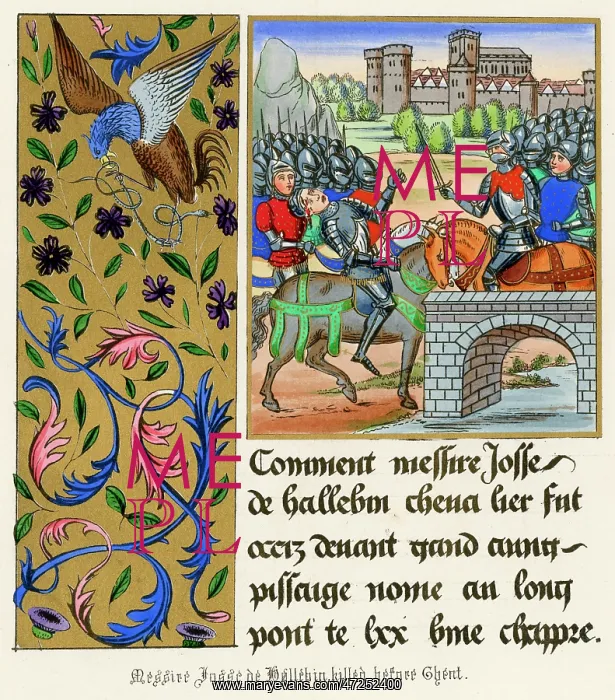 ME
PL
ME
PL
Comment messire Josse
de hallebin cheua lier fut
occiz deuant gand aung
passaige nome au long
pont te lxx bme chappre.
Messire Josse de Hallebin killed before Ghent.
www.maryevans.com/47252400